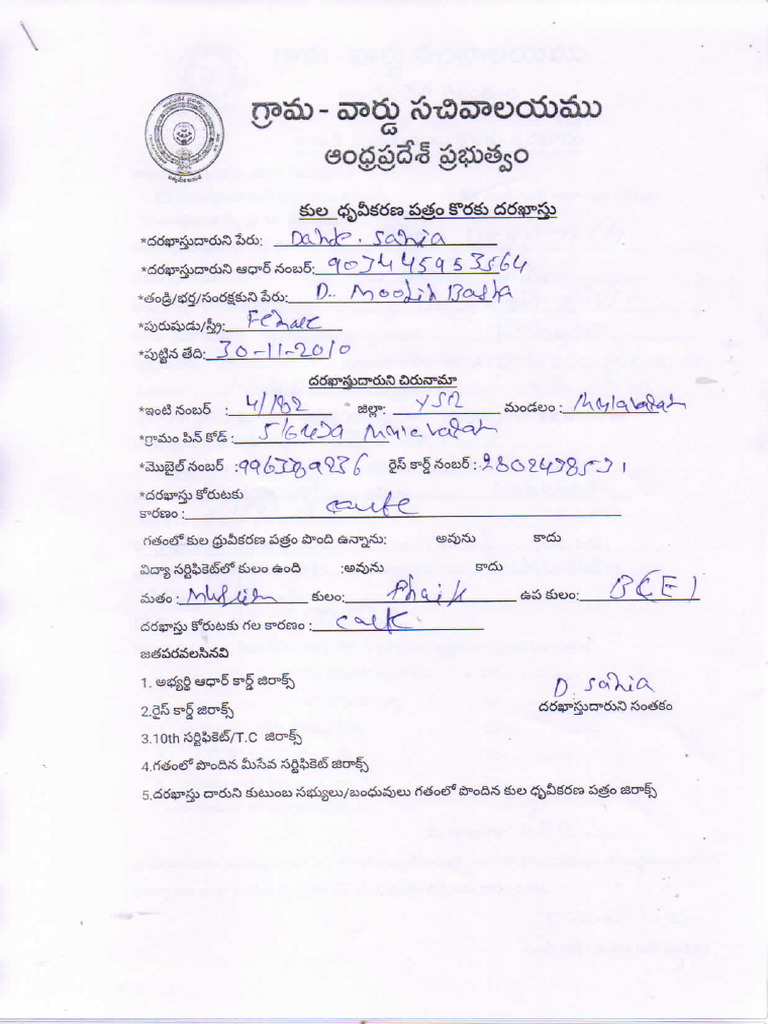 గ్రామ - వార్డు సచివాలయము
ఆంధ్రప్రదేశ్ ప్రభుత్వం
కుల ధృవీకరణ పత్రం కొరకు దరఖాస్తు
*దరఖాస్తుదారుని పేరు: Sania
*దరఖాస్తుదారుని ఆధార్ నంబర్: 903445953564
*తండ్రి/భర్త/సంరక్షకుని పేరు: D.. Basha
*పురుషుడు/స్త్రీ: Female
*పుట్టిన తేది: 30-11-2010
దరఖాస్తుదారుని చిరునామా
*ఇంటి నంబర్ : 4/182 జిల్లా: YSR మండలం : Mylavaram
*గ్రామం పిన్ కోడ్ : Mylavaram
*మొబైల్ నంబర్ : రైస్ కార్డ్ నంబర్ :
*దరఖాస్తు కోరుటకు
కారణం :
గతంలో కుల ధ్రువీకరణ పత్రం పొంది ఉన్నాను: అవును కాదు
విద్యా సర్టిఫికెట్‌లో కులం ఉంది :అవును కాదు
మతం : Muslim కులం: Shaik ఉప కులం: BC(E)
దరఖాస్తు కోరుటకు గల కారణం :
జతపరవలసినవి
1. అభ్యర్థి ఆధార్ కార్డ్ జిరాక్స్
D. Sania
2.రైస్ కార్డ్ జిరాక్స్ దరఖాస్తుదారుని సంతకం
3.10th సర్టిఫికెట్/T.C జిరాక్స్
4.గతంలో పొందిన మీసేవ సర్టిఫికెట్ జిరాక్స్
5.దరఖాస్తు దారుని కుటుంబ సభ్యులు/బంధువులు గతంలో పొందిన కుల ధృవీకరణ పత్రం జిరాక్స్